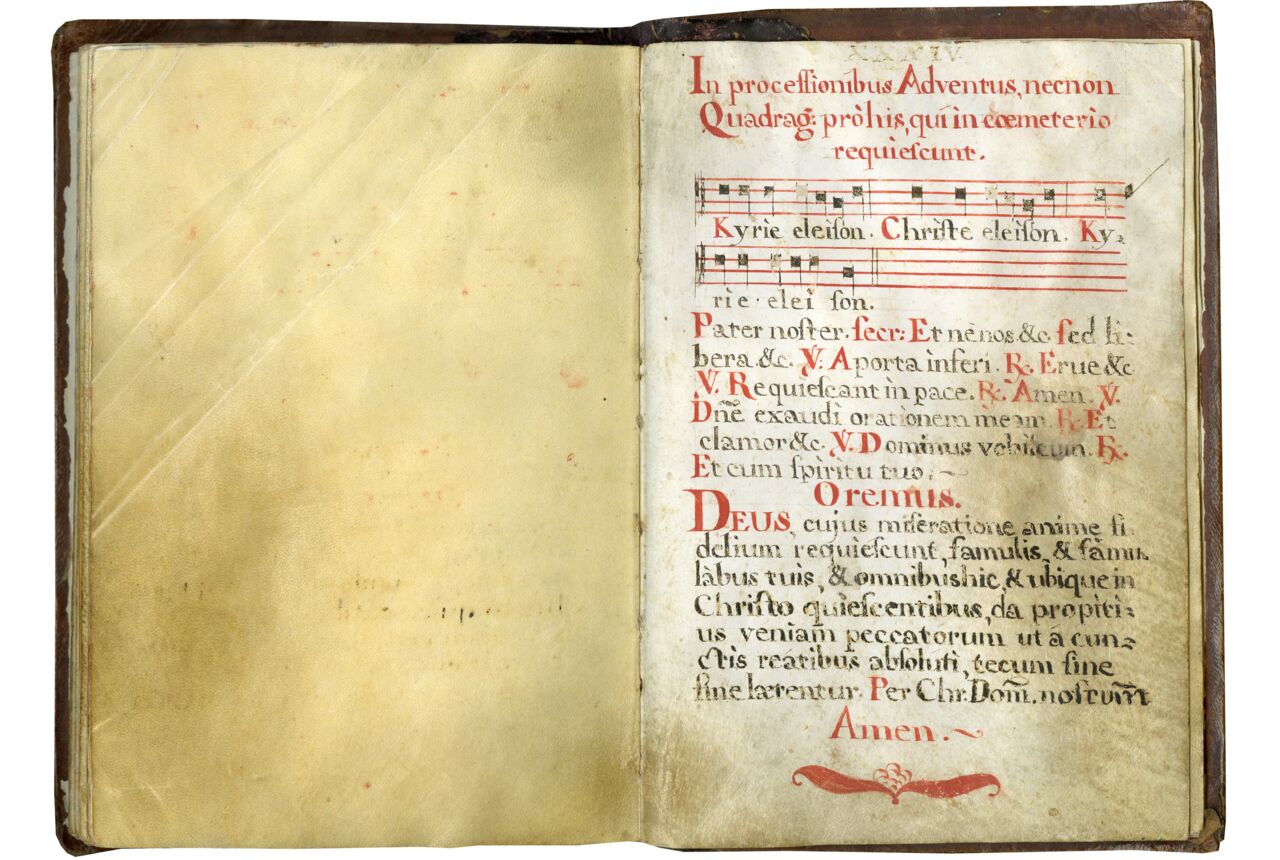 In processionibus Adventus, necnon
Quadrag: prò his, qui in cœmeterio
requiescunt.
Kyrie eleison. Christe eleison. Ky-
rie. elei son.
Pater noster. secr: Et ne nos &c. sed li-
bera &c. ℣. A porta inferi. ℟. Erue &c
℣. Requiescant in pace. ℟. Amen. ℣.
Dnē exaudi orationem meam. ℟. Et
clamor &c. ℣. Dominus vobiscum. ℟.
Et cum spiritu tuo.
Oremus.
DEUS, cujus miseratione anime fi
delium requiescunt, famulis, & famu
làbus tuis, & omnibus hic, & ubique in
Christo quiescentibus, da propiti-
us veniam peccatorum ut á cun-
ctis reatibus absoluti, tecum sine
fine lætentur. Per Chr. Dom̄. nostrum̄
Amen.